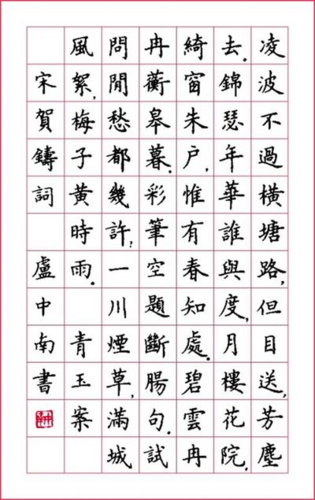 凌波不過橫塘路,但目送,芳塵
去。錦瑟年華誰與度,月樓花院,
綺窗朱户,惟有春知處。碧雲冉
冉蘅皋暮。彩筆空題斷腸句。試
問閒愁都幾許?一川煙草,滿城
風絮,梅子黃時雨。 青玉案
宋賀鑄詞 盧中南書